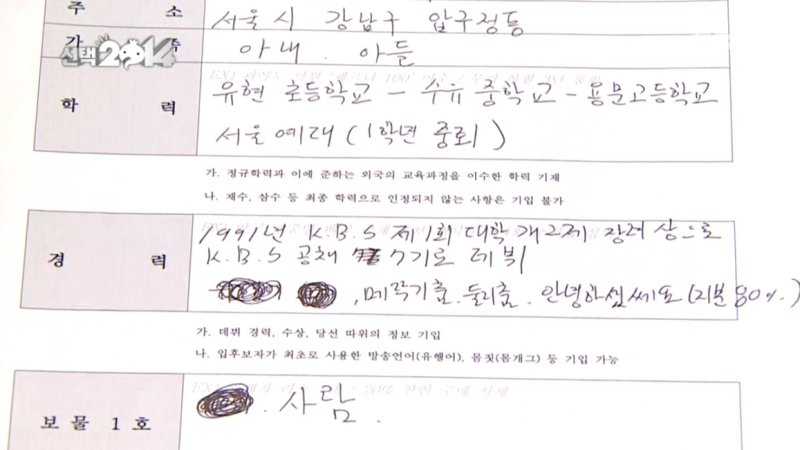 주 소 서울시 강남구 압구정동
선택 2014
가 족 아내. 아들
학 력 유현 초등학교 - 수유 중학교 - 용문고등학교
서울예대 (1학년 중퇴)
가. 정규학력과 이에 준하는 외국의 교육과정을 이수한 학력 기재
나. 재수, 삼수 등 최종 학력으로 인정되지 않는 사항은 기입 불가
경 력 1991년 K.B.S 제1회 대학개그제 장려상으로
K.B.S 공채 7기로 데뷔
, 메뚜기춤. , 안녕하십쎄요 (지분 80%)
가. 데뷔 경력, 수상, 당선 따위의 정보 기입
나. 입후보자가 최초로 사용한 방송언어(유행어), 몸짓(몸개그) 등 기입 가능
보물 1호 . 사람.